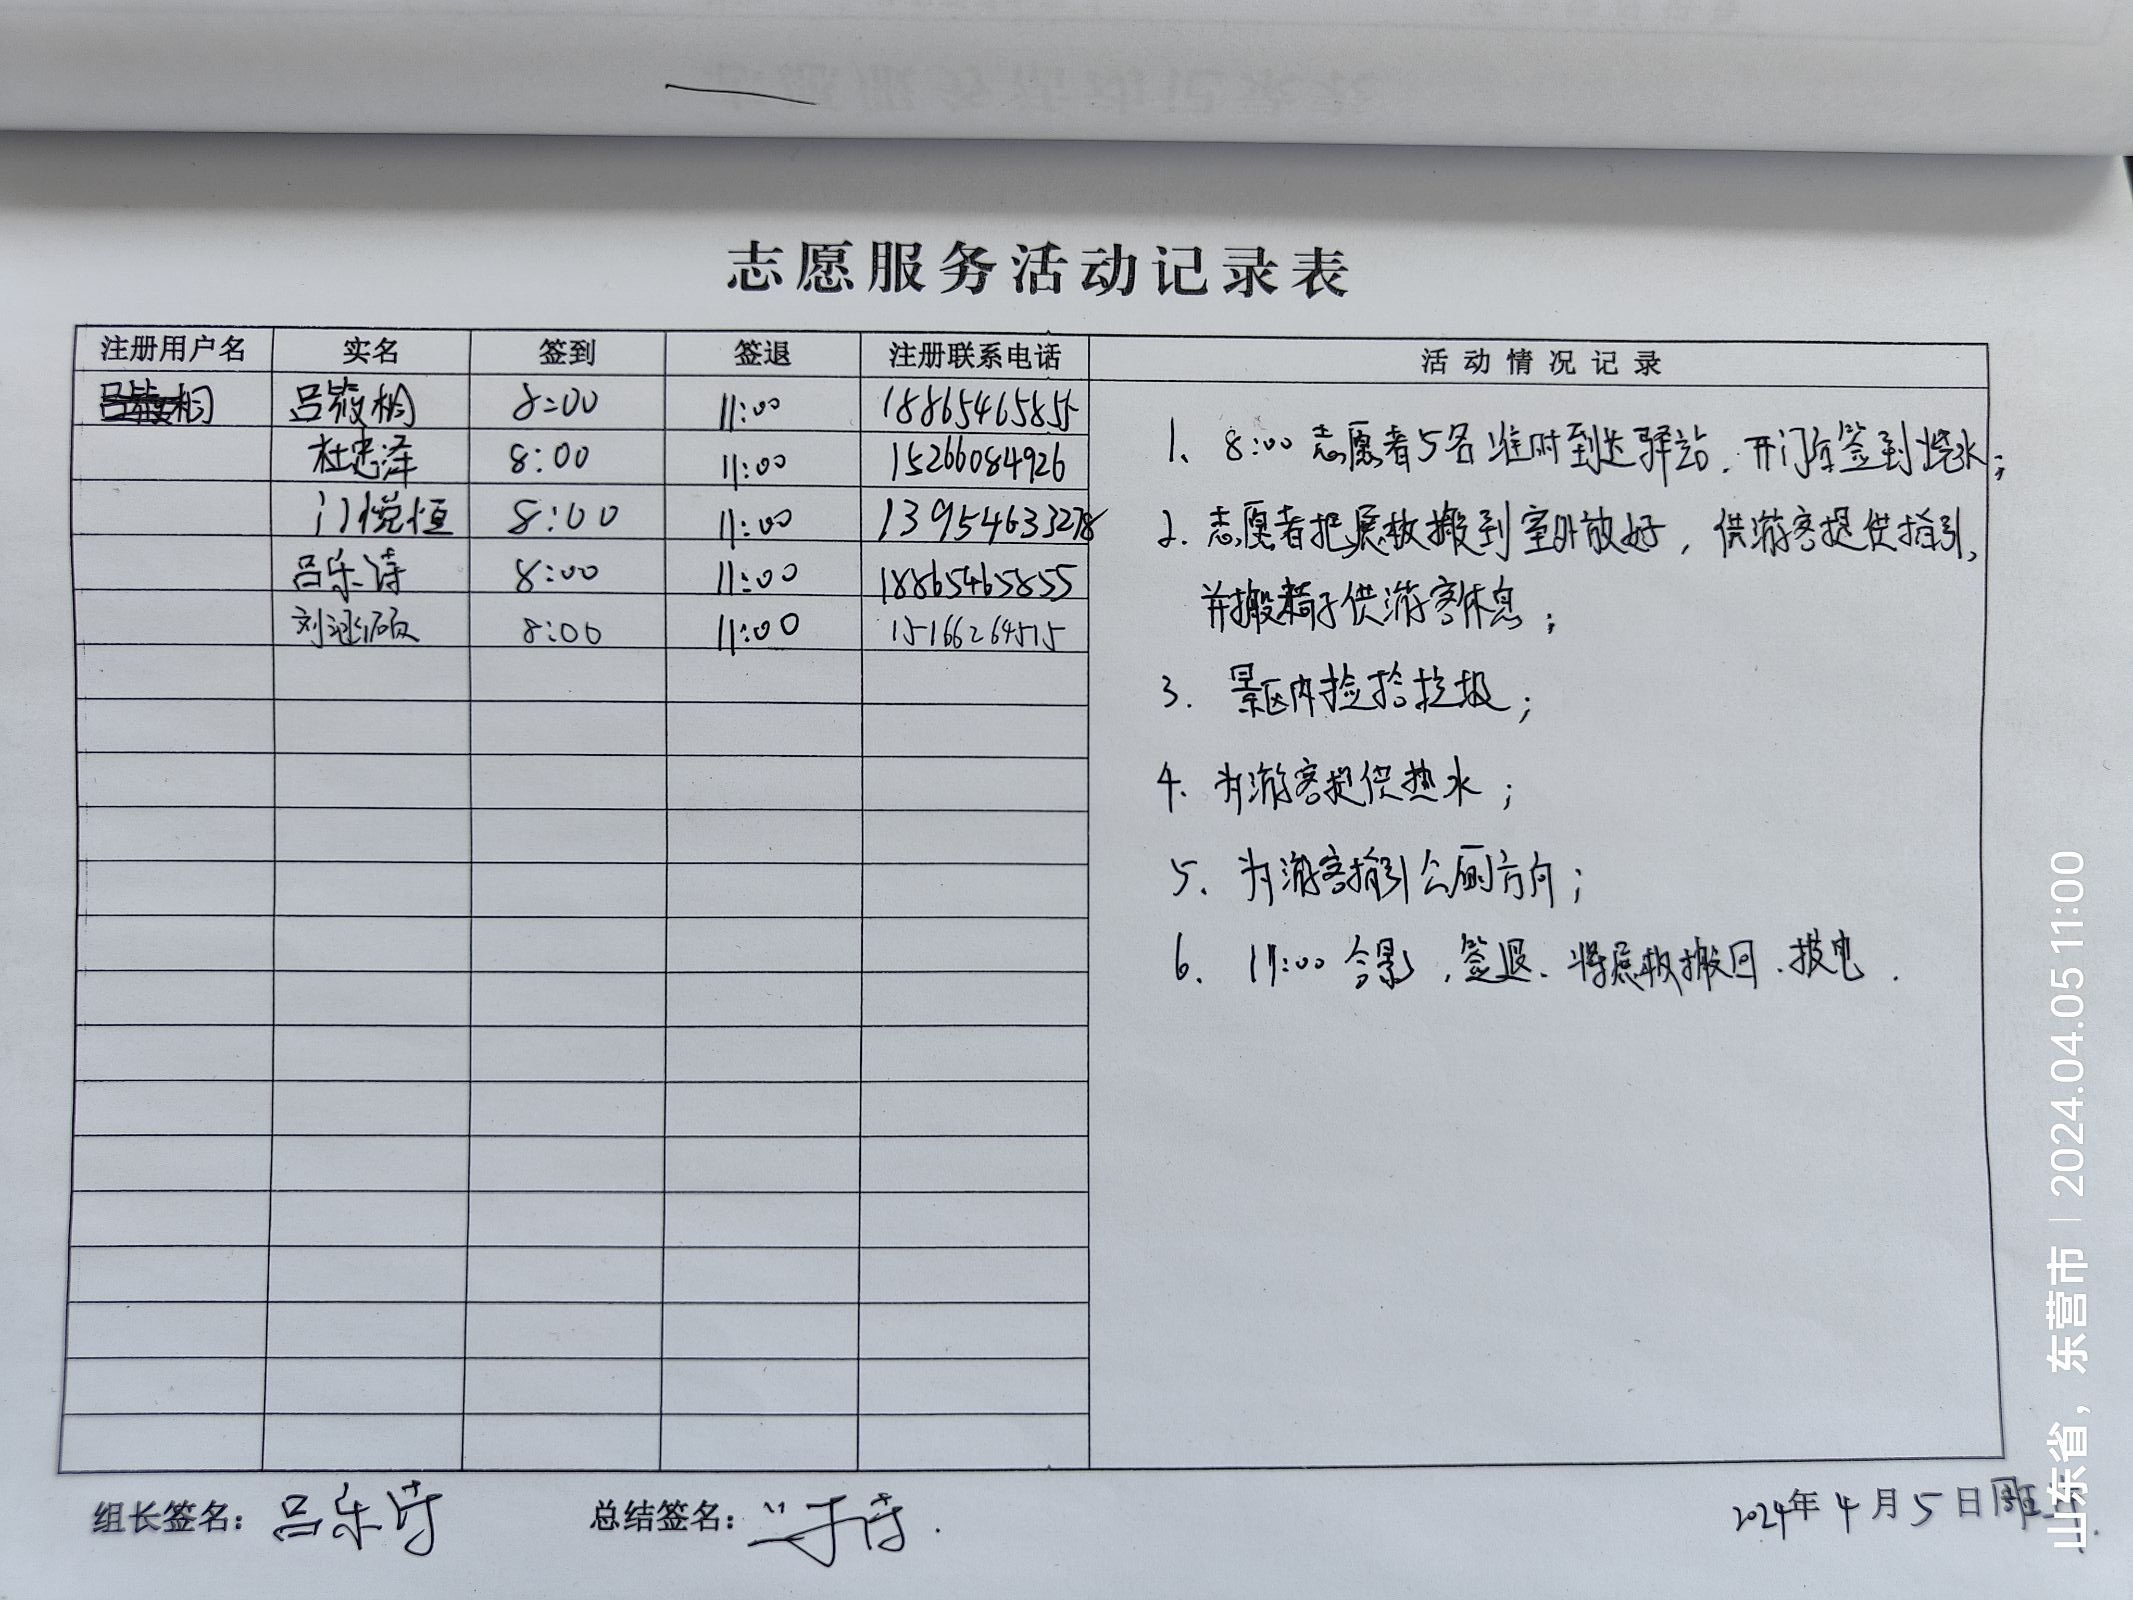 志愿服务活动记录表
注册用户名 实名 签到 签退 注册联系电话 活动情况记录
吕筱桐 8:00 11:00 18865465855
杜忠泽 8:00 11:00 15266084926
门悦恒 8:00 11:00 13954633278
吕乐诗 8:00 11:00 18865465855
刘 硕 8:00 11:00 15166264515
1、8:00 志愿者5名准时到达驿站,开门车签到烧水;
2. 志愿者把展板搬到室外放好,供游客提供指引,
并搬椅子供游客休息;
3. 景区内捡拾垃圾;
4. 为游客提供热水;
5. 为游客指引公厕方向;
6. 11:00 合影,签退、将展板搬回、拔电.
组长签名: 吕乐诗 总结签名: 2024年4月5日
山东省, 东营市 | 2024.04.05 11:00